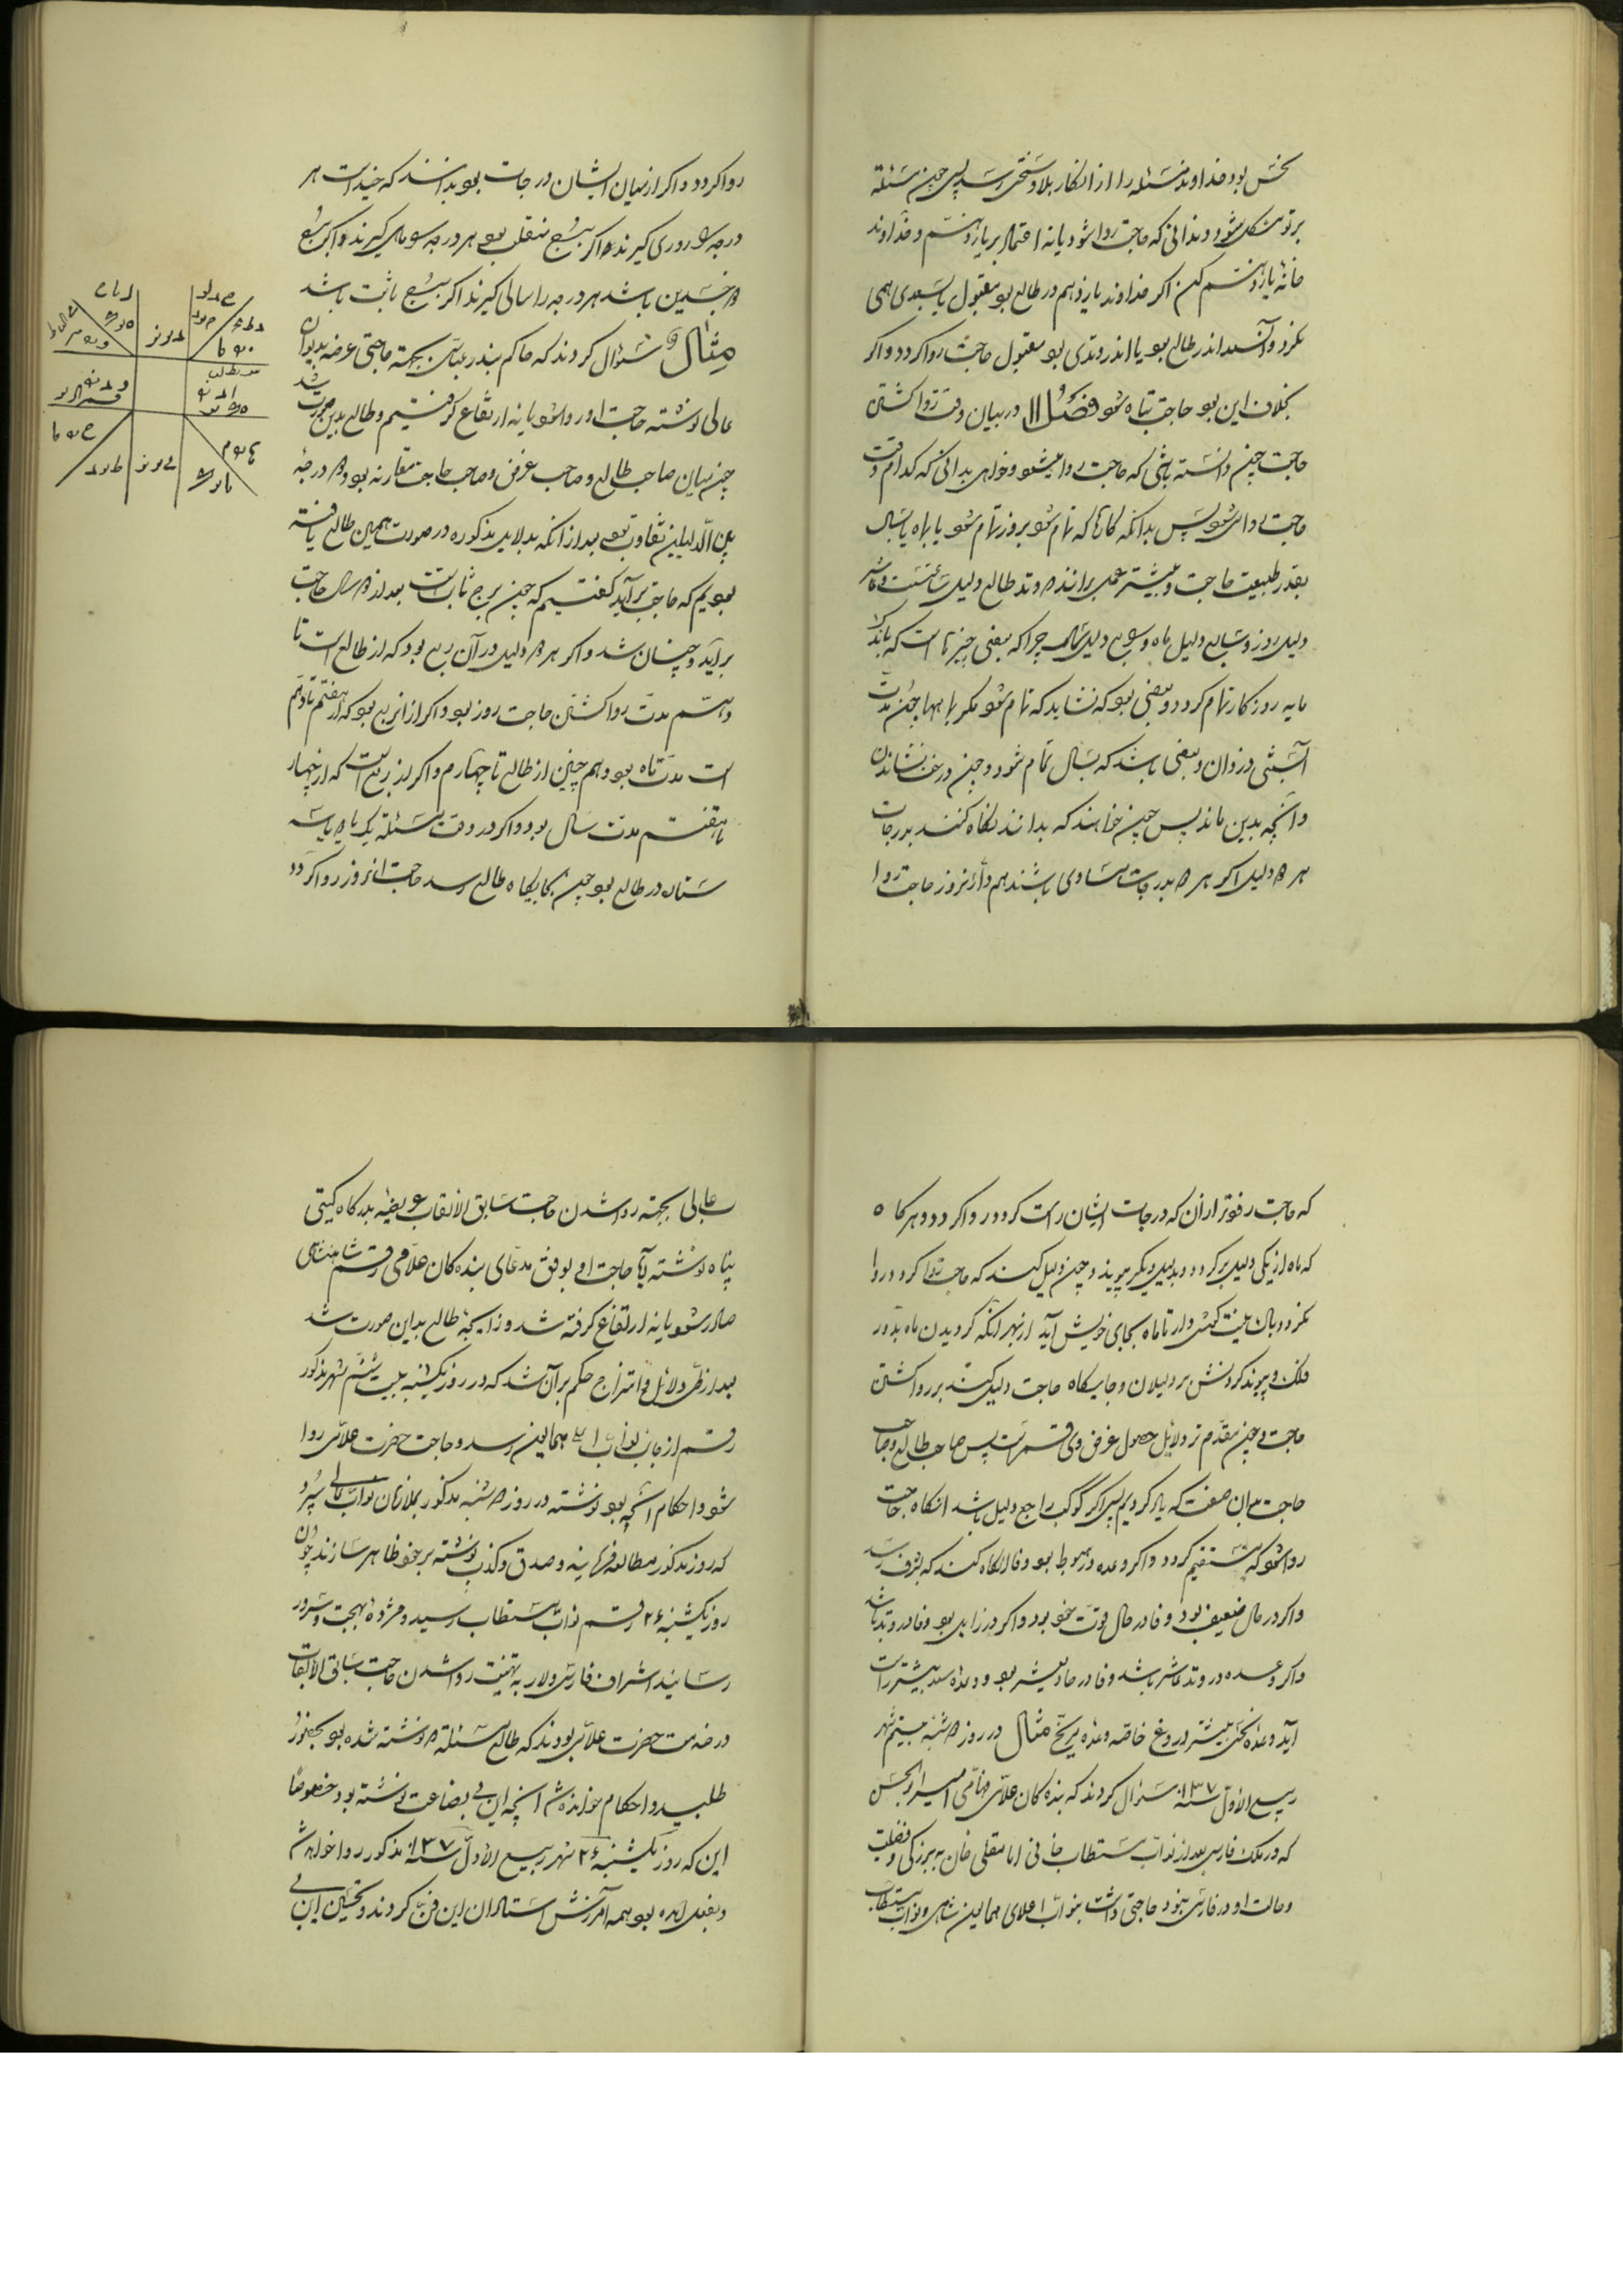 بخش بود خداوند مسئله را از انکار بلا و سختی رسد پس چون مسئله
بر تو مشکل شود و ندانی که حاجت روا شود یا نه اعتماد بر یازدهم و خداوند
خانهٔ یازدهم کن اگر خداوند یازدهم در طالع بود مقبول یا سعدی همی
نگرد و آن سعد اندر طالع بود یا اندر وتدی بود مقبول حاجت روا گردد و اگر
بخلاف این بود حاجت تباه شود فصل ۱۱ در بیان وقت روا گشتن
حاجت چون دانسته باشی که حاجت روا میشود و خواهی بدانی که کدام وقت
حاجت روا شود پس بدانکه کارها که تمام شود بروز تمام شود یا بماه یا بسال
بقدر طبیعت حاجت و بیشتر عمل برانند و وتد طالع دلیل ساعتست و عاشر
دلیل روز و سابع دلیل ماه و رابع دلیل سال چرا که بعضی چیزها است که باندک
مایه روزگار تمام گردد و بعضی بود که نشاید که تمام شود مگر بماهها چون مدت
آبستنی زنان و بعضی باشد که بسال تمام شود و چون درخت نشاندن
و آنچه بدین ماند پس چون خواهند که بدانند نگاه کنند بدرجات
هر دو دلیل اگر هر دو بدرجات مساوی باشند هم در آن روز حاجت روا
روا گردد و اگر از میان ایشان درجات بود بدانند که چند است هر
درجه را روزی گیرند و اگر ببرج منقلب بود هر درجه را ماهی گیرند و اگر ببرج
ذو جسدین باشد هر درجه را سالی گیرند اگر ببرج ثابت باشد
مثال سئوال کردند که حاکم بندر عباس بجهة حاجتی عرضه بدیوان
عالی نوشته حاجت او روا شود یا نه ارتفاع گرفتیم و طالع بدین صورت شد
چون میان صاحب طالع و صاحب غرض و صاحب حاجت مقارنه بود و درجهٔ
بین الدلیلین تفاوت بود بعد از آنکه بدلایل مذکوره در صورت همین طالع یافته
بودیم که حاجت برآید گفتیم که چون برج ثابت است بعد از دو سال حاجت
برآید و چنان شد و اگر هر دو دلیل در آن ربع بود که از طالع است تا
دهم مدت روا گشتن حاجت روز بود و اگر از آن ربع بود که از هفتم تا دهم
است مدت ماه بود و هم چنین از طالع تا چهارم و اگر از ربع است که از چهار
تا هفتم مدت سال بود و اگر در وقت مسئله یک یا دو یا سه
ستاره در طالع بود چون بجایگاه طالع رسد حاجت آنروز روا گردد
که حاجت رفوتر از آن که درجات ایشان راست گردد روا گردد و هرگاه
که ماه از یکی دلیل برگردد و بدلیل دیگر پیوندد چنین دلیل کند که حاجت روا گردد و روا
نگردد بآن نیت گشتن دار تا ماه بجای خویش آید از بهر آنکه گردیدن ماه بدور
فلک و پیوند کردنش بر دلیلان و جایگاه حاجت دلیل کند بر روا گشتن
حاجت و چون مقدم تر دلایل حصول غرض وی قمر است پس صاحب طالع و صاحب
حاجت بدان صفت که یاد کردیم پس اگر کوکب راجع دلیل باشد آنگاه حاجت
روا شود که مستقیم گردد و اگر وعده در هبوط بود وفا آنگاه کند که بشرف رسد
و اگر در حال ضعیف بود وفا در حال قوت خود بود و اگر در زایل بود وفا در وتد باشد
و اگر وعده در وتد عاشر باشد وفا در حادیعشر بود و وعدهٔ سعد بیشتر راست
آید و وعدهٔ نحس بیشتر دروغ خاصه وعدهٔ مریخ مثال در روز دوشنبه بیستم شهر
ربیع الاول سنهٔ ۱۳۷ سئوال کردند که بنده کان علامی فهامی امیر ابوالحسن
که در ملک فارس بعد از نواب مستطاب خانی امامقلی خان به بزرگی و فضیلت
و حالت او در فارس نبود حاجتی داشت بنواب اعلای همایون شاهی و نواب مستطاب
عالی بجهة روا شدن حاجت سابق الالقاب عریضه بدرگاه گیتی
پناه نوشته آیا حاجت او بوفق مدعای بنده کان علامی رقم شاهنشاهی
صادر شود یا نه ارتفاع گرفته شد و زایجهٔ طالع بدین صورت شد
بعد از نظر دلائل و امتزاج حکم برآن شد که در روز یکشنبه بیست ششم شهر مذکور
رقم از جانب نواب همایون رسد و حاجت حضرت علامی روا
شود و احکام آنچه بود نوشته در روز دوشنبه مذکور بملازمان نواب عالی سپرد
که روز مذکور مطالعه فرمایند و صدق و کذب نوشته بر خود ظاهر سازند چون
روز یکشنبه ۲۶ رقم نواب مستطاب رسید و مژدهٔ بهجت و سرور
رسانید اشراف فارس و لار به تهنیت روا شدن حاجت سابق الالقاب
در خدمت حضرت علامی بودند که طالع مسئلهٔ نوشته شده بود بحضور
طلبید و احکام خوانده شد آنچه این بی بضاعت نوشته بود خصوصاً
این که روز یکشنبه ۲۶ شهر ربیع الاول سنهٔ ۱۳۷ مذکور روا خواهد شد
و بفعل آمده بود همه آمرزش استادان این فن کردند و تحسین این بی